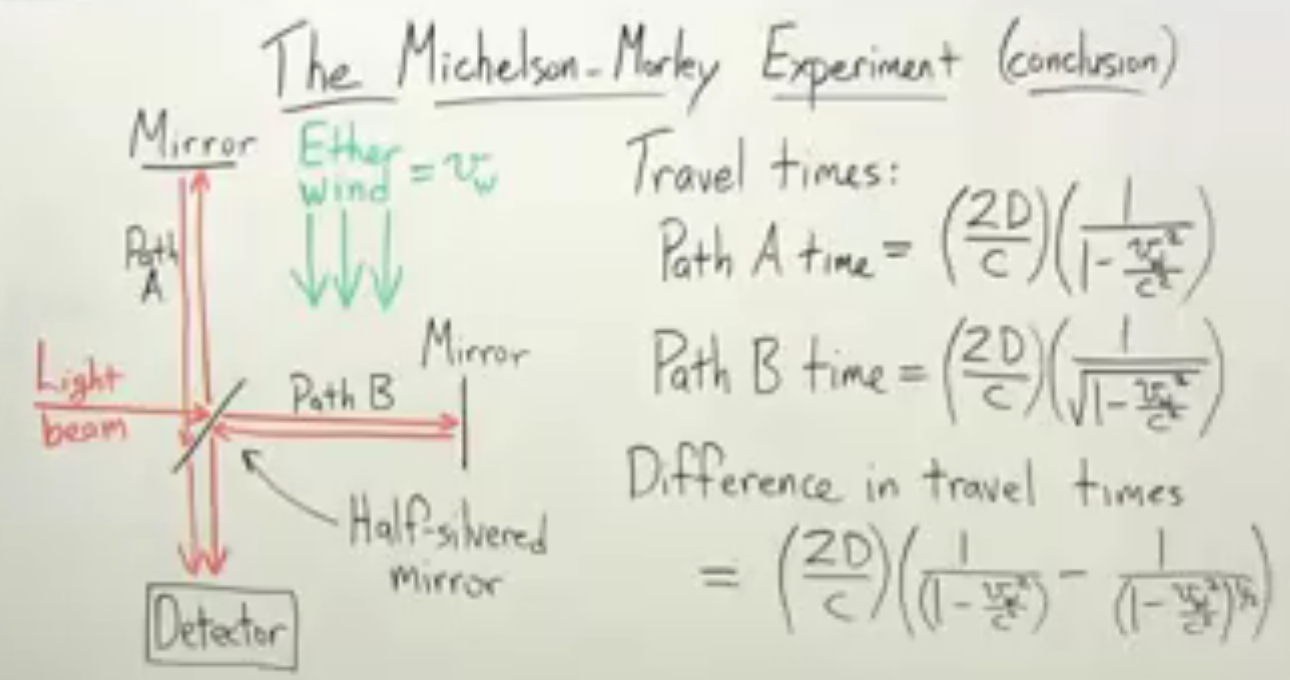 The Michelson-Morley Experiment (conclusion)
Mirror
Ether
wind = v_w
Path
A
Light
beam
Path B
Mirror
Half-silvered
mirror
Detector
Travel times:
Path A time = (2D/C)(1/(1 - v_w²/c²))
Path B time = (2D/C)(1/√(1 - v_w²/c²))
Difference in travel times
= (2D/C)(1/(1 - v_w²/c²) - 1/(1 - v_w²/c²)^(1/2))